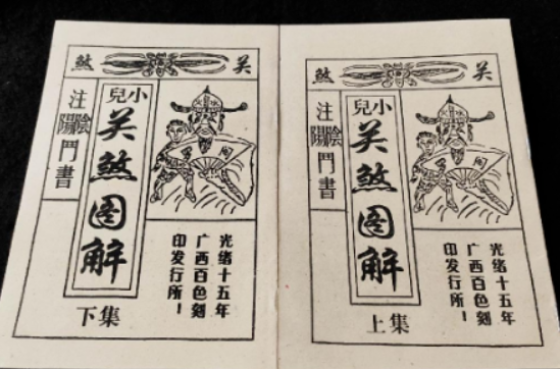 关煞
光绪十五年
广西百色刻
印发行所！
小兒
关煞图解
注陰陽門書
上集
关煞
光绪十五年
广西百色刻
印发行所！
小兒
关煞图解
注陰陽門書
下集